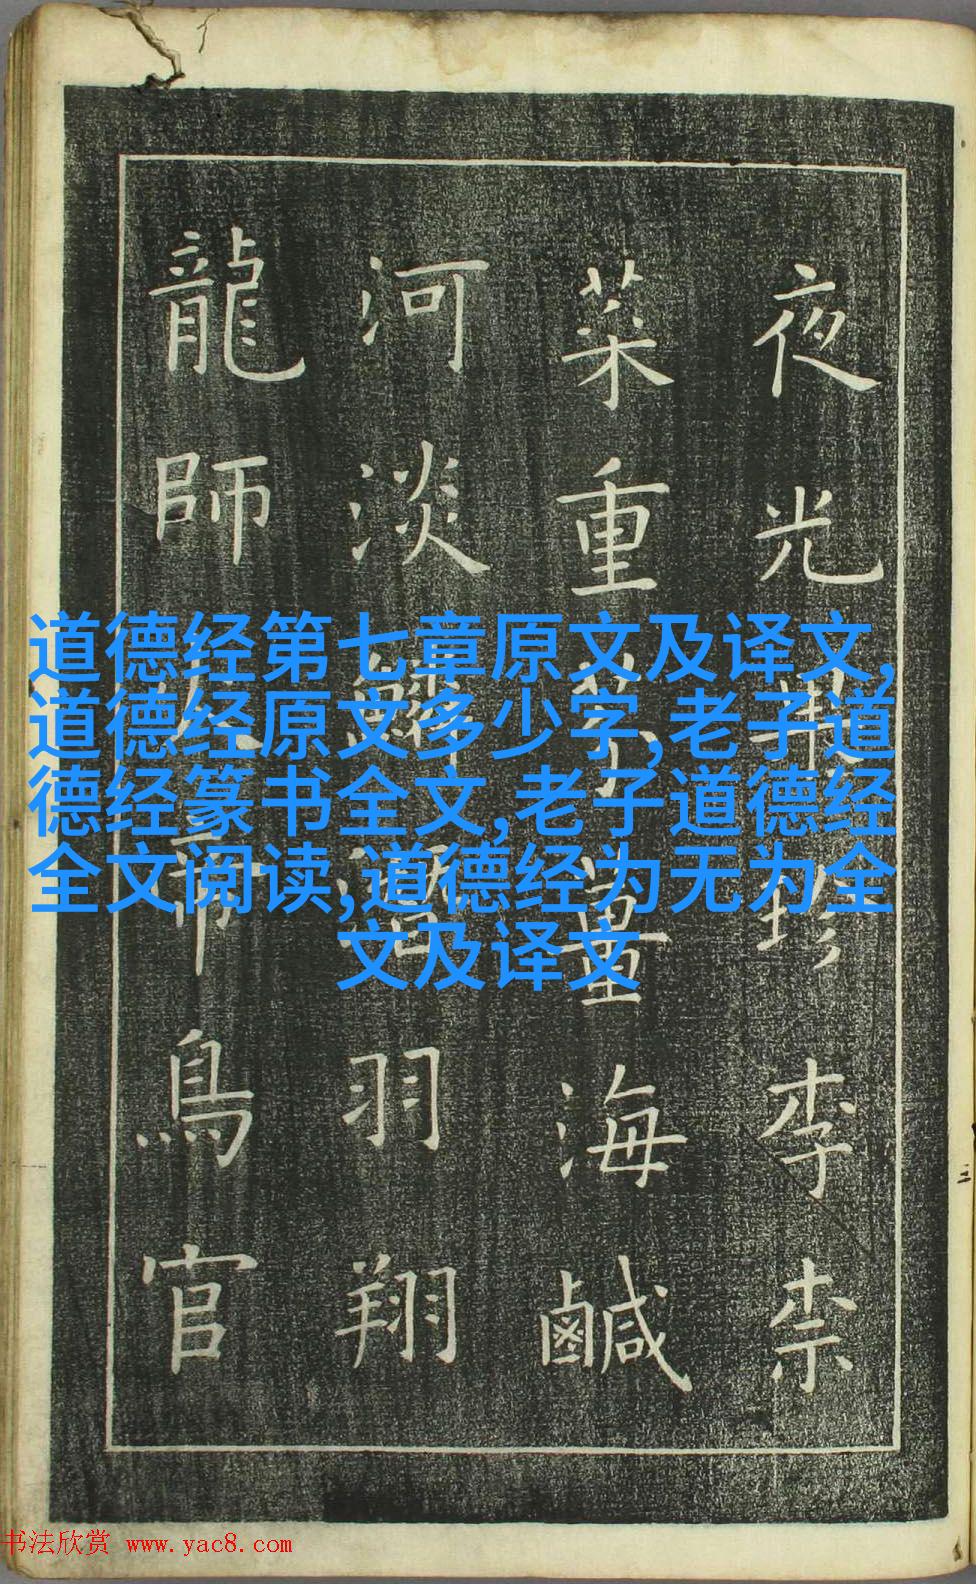 夜光珍李柰
菜重芥薑海鹹
河淡鱗潛羽翔
龍師火帝鳥官
道德经第七章原文及译文,
道德经原文多少字,老子道
德经篆书全文,老子道德经
全文阅读,道德经为无为全
文及译文
书法欣赏 www.yac8.com